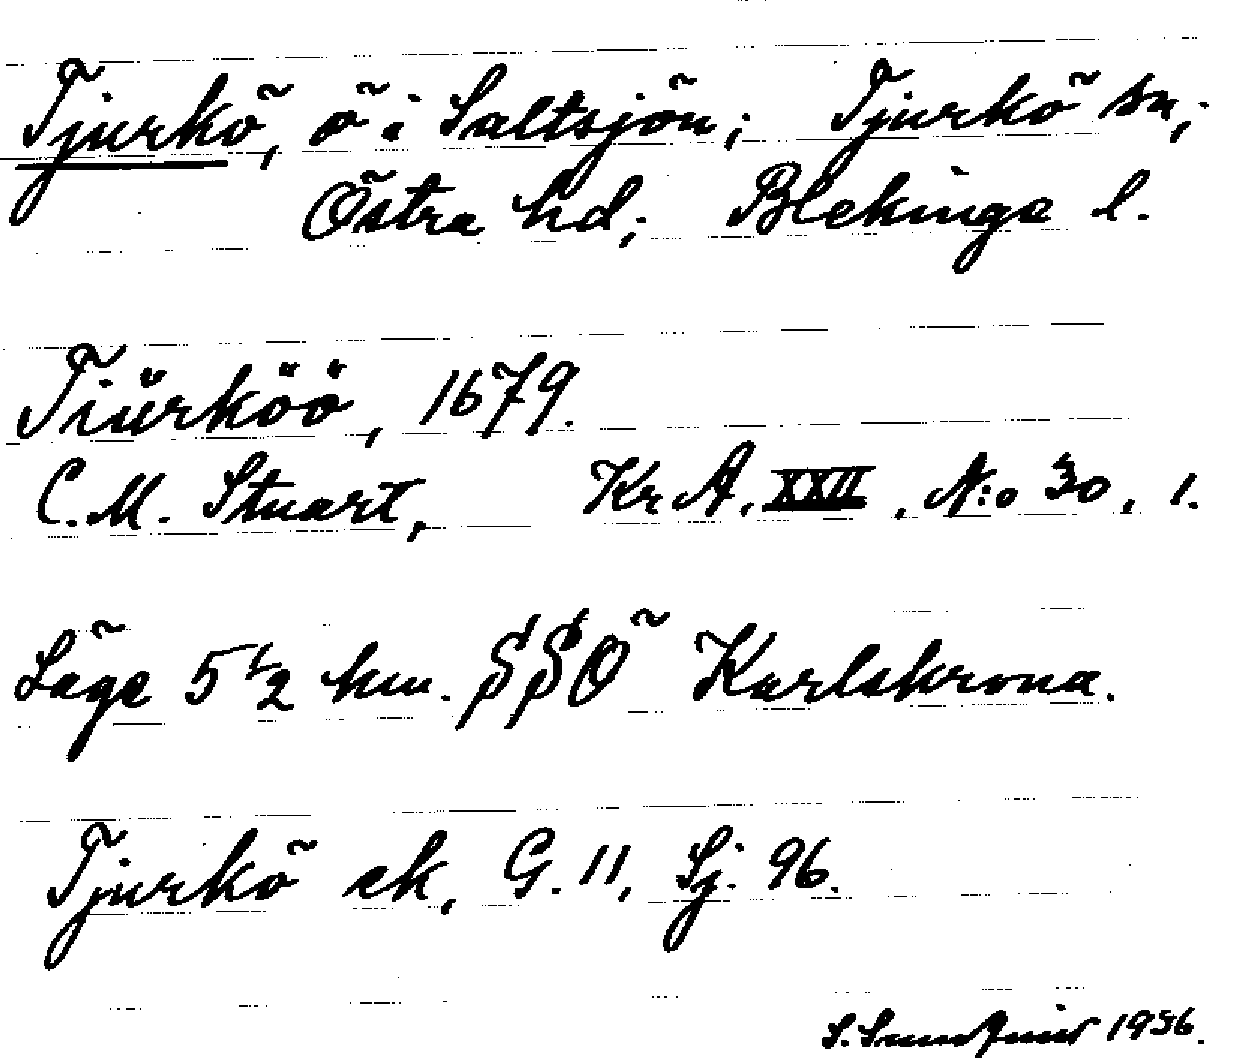 Tjurkö, ö i Saltsjön; Tjurkö sn;
Östra hd; Blekinge l.
Tiürköö, 1679.
C. M. Stuart, Kr A. XXII, N:o 30, 1.
Läge 5 1/2 km. SSO Karlskrona.
Tjurkö ek, G. 11, Sj. 96.
S. 1956.